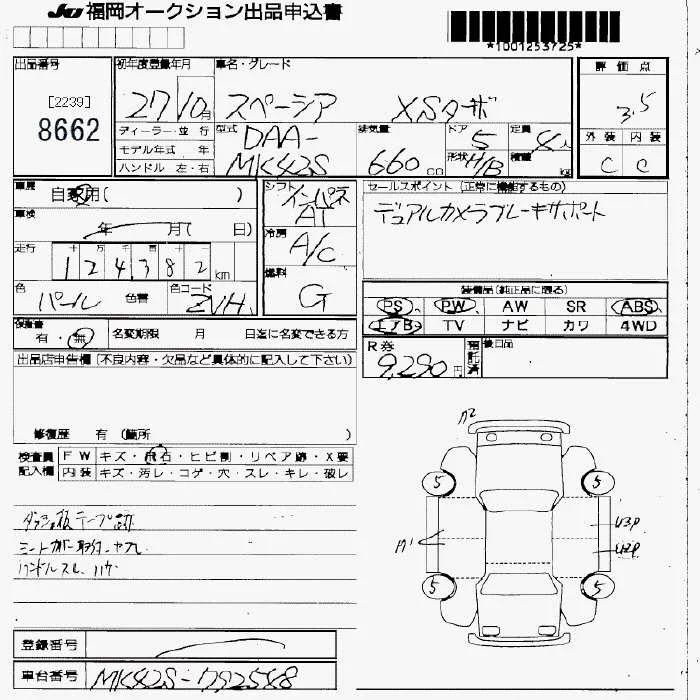 JU 福岡オークション出品申込書
*1001253725*
出品番号
[2239]
8662
初年度登録年月
27 10月
車名・グレード
スペーシア XSターボ
ディーラー・並 行
モデル年式 年
ハンドル 左・右
型式
DAA-
MK42S
排気量
660cc
ドア
5
形状
H/B
定員
4人
積載
kg
評 価 点
3.5
外 装 内 装
C C
車歴
自家用( )
車検
年 月( 日)
走行
十 万 千 百 十 一
124,382 km
色
パール
色替
色コード
ZVH
シフト
インパネ
AT
冷房
A/C
燃料
G
セールスポイント (正常に機能するもの)
デュアルカメラブレーキサポート
装備品(純正品に限る)
PS PW AW SR ABS
エアB TV ナビ カワ 4WD
R券
9,290円
預託済
後日品
検査書
有・無
名変期限 月 日迄に名変できる方
出品店申告欄(不良内容・欠品など具体的に記入して下さい)
修復歴 有 (箇所 )
検査員
記入欄
FW キズ・飛石・ヒビ割・リペア跡・X要
内装 キズ・汚レ・コゲ・穴・スレ・キレ・破レ
ダッシュ板テープ跡
シートカバー取付、ヤブレ
ハンドルスレ、ハゲ
A2
5
5
A1
U3P
U2P
5
5
登録番号
車台番号
MK42S-